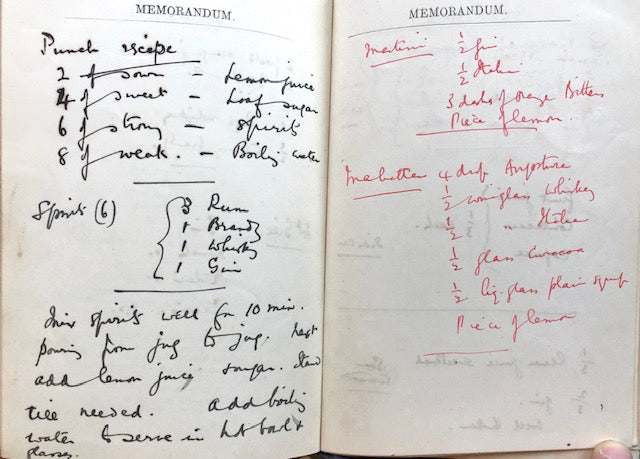 MEMORANDUM.
Punch recipe
2 of sour - Lemon juice
4 of sweet - Loaf sugar
6 of strong - Spirits
8 of weak. - Boiling water
Spirits (6) 3 Rum
1 Brandy
1 Whisky
1 Gin
Mix spirits well for 10 min.
pouring from jug to jug. Next
add lemon juice sugar. Stand
till needed. add boiling
water to serve in hot bowl &
glasses.
MEMORANDUM.
Martini 1/2 gin
1/2 Italian
3 dashes of orange Bitters
Piece of lemon.
Manhattan 4 drops Angostura
1/2 wineglass Whiskey
1/2 " Italian
1/2 glass Curacoa
1/2 liq. glass plain syrup
Piece of lemon